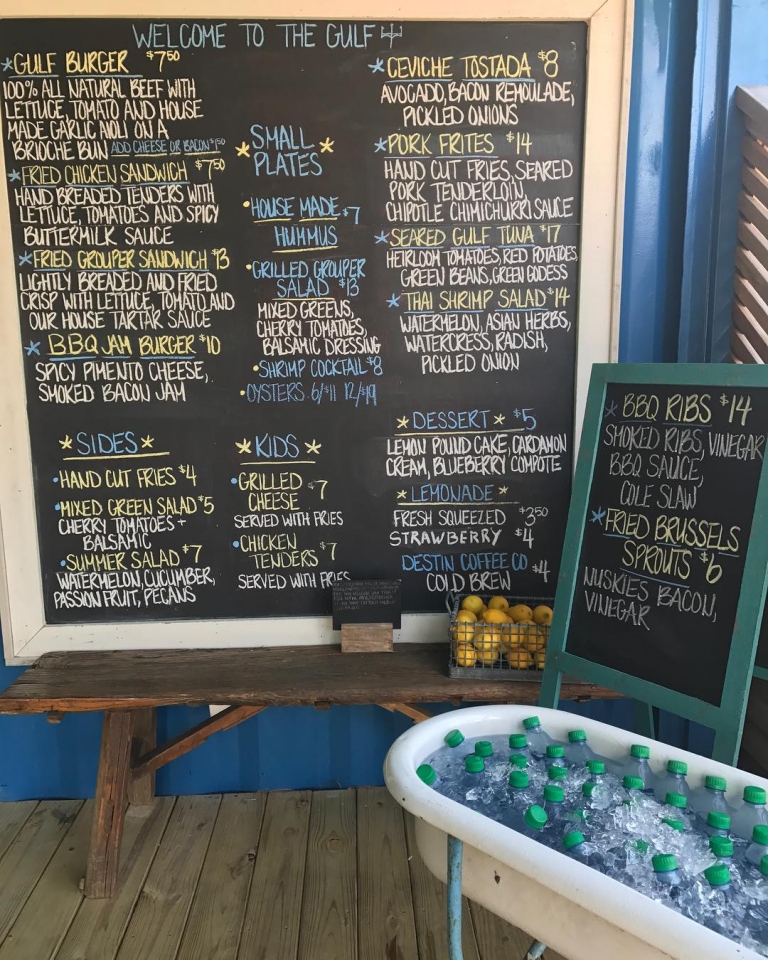 WELCOME TO THE GULF
GULF BURGER $7.50
100% ALL NATURAL BEEF WITH
LETTUCE, TOMATO AND HOUSE
MADE GARLIC AIOLI ON A
BRIOCHE BUN ADD CHEESE OR BACON $1.50
FRIED CHICKEN SANDWICH $7.50
HAND BREADED TENDERS WITH
LETTUCE, TOMATOES AND SPICY
BUTTERMILK SAUCE
FRIED GROUPER SANDWICH $13
LIGHTLY BREADED AND FRIED
CRISP WITH LETTUCE, TOMATO AND
OUR HOUSE TARTAR SAUCE
BBQ JAM BURGER $10
SPICY PIMENTO CHEESE,
SMOKED BACON JAM
SMALL
PLATES
HOUSE MADE $7
HUMMUS
GRILLED GROUPER
SALAD $13
MIXED GREENS,
CHERRY TOMATOES,
BALSAMIC DRESSING
SHRIMP COCKTAIL $8
OYSTERS 6/$11 12/$19
CEVICHE TOSTADA $8
AVOCADO, BACON REMOULADE,
PICKLED ONIONS
PORK FRITES $14
HAND CUT FRIES, SEARED
PORK TENDERLOIN,
CHIPOTLE CHIMICHURRI SAUCE
SEARED GULF TUNA $17
HEIRLOOM TOMATOES, RED POTATOES,
GREEN BEANS, GREEN GODESS
THAI SHRIMP SALAD $14
WATERMELON, ASIAN HERBS,
WATERCRESS, RADISH,
PICKLED ONION
SIDES
HAND CUT FRIES $4
MIXED GREEN SALAD $5
CHERRY TOMATOES +
BALSAMIC
SUMMER SALAD $7
WATERMELON, CUCUMBER,
PASSION FRUIT, PECANS
KIDS
GRILLED
CHEESE $7
SERVED WITH FRIES
CHICKEN
TENDERS $7
SERVED WITH FRIES
DESSERT $5
LEMON POUND CAKE, CARDAMON
CREAM, BLUEBERRY COMPOTE
LEMONADE
FRESH SQUEEZED $3.50
STRAWBERRY $4
DESTIN COFFEE CO
COLD BREW $4
BBQ RIBS $14
SMOKED RIBS, VINEGAR
BBQ SAUCE,
COLE SLAW
FRIED BRUSSELS
SPROUTS $6
NUSKIES BACON,
VINEGAR